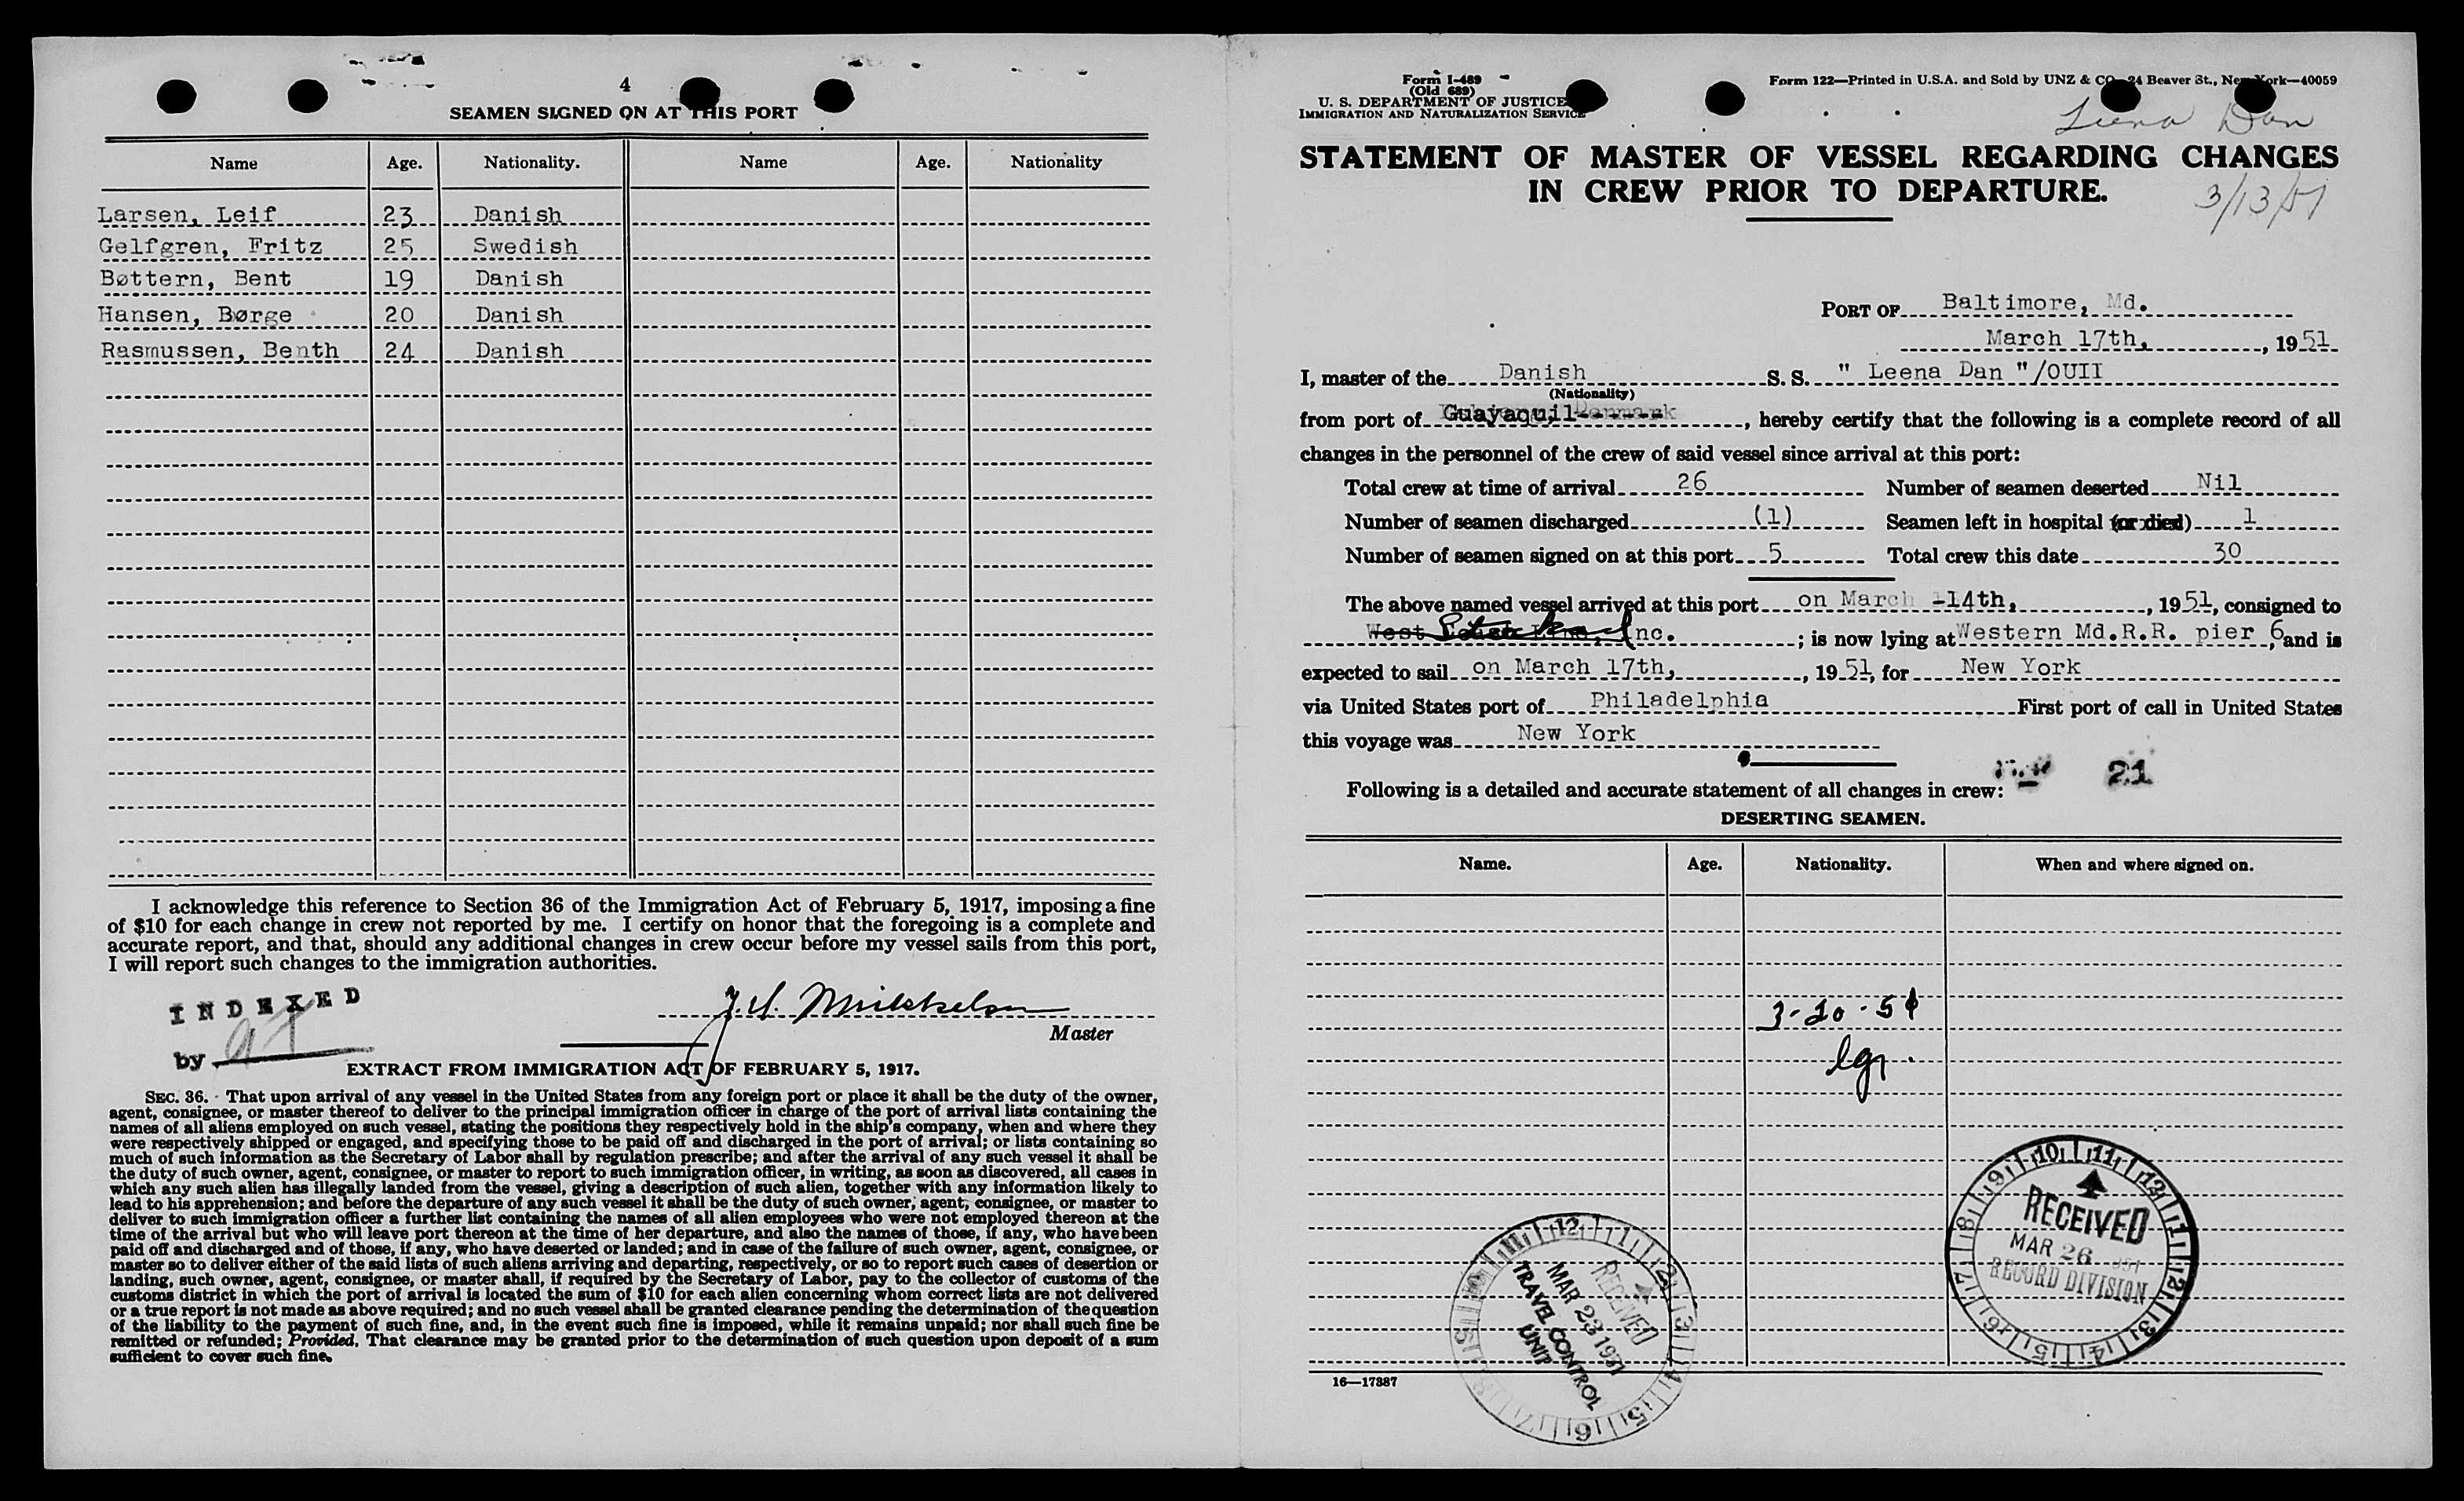 4
SEAMEN SIGNED ON AT THIS PORT
Name Age. Nationality. Name Age. Nationality
Larsen, Leif 23 Danish
Gelfgren, Fritz 25 Swedish
Bøttern, Bent 19 Danish
Hansen, Børge 20 Danish
Rasmussen, Benth 24 Danish
I acknowledge this reference to Section 36 of the Immigration Act of February 5, 1917, imposing a fine
of $10 for each change in crew not reported by me. I certify on honor that the foregoing is a complete and
accurate report, and that, should any additional changes in crew occur before my vessel sails from this port,
I will report such changes to the immigration authorities.
INDEXED
by
Master
EXTRACT FROM IMMIGRATION ACT OF FEBRUARY 5, 1917.
SEC. 36. That upon arrival of any vessel in the United States from any foreign port or place it shall be the duty of the owner,
agent, consignee, or master thereof to deliver to the principal immigration officer in charge of the port of arrival lists containing the
names of all aliens employed on such vessel, stating the positions they respectively hold in the ship's company, when and where they
were respectively shipped or engaged, and specifying those to be paid off and discharged in the port of arrival; or lists containing so
much of such information as the Secretary of Labor shall by regulation prescribe; and after the arrival of any such vessel it shall be
the duty of such owner, agent, consignee, or master to report to such immigration officer, in writing, as soon as discovered, all cases in
which any such alien has illegally landed from the vessel, giving a description of such alien, together with any information likely to
lead to his apprehension; and before the departure of any such vessel it shall be the duty of such owner, agent, consignee, or master to
deliver to such immigration officer a further list containing the names of all alien employees who were not employed thereon at the
time of the arrival but who will leave port thereon at the time of her departure, and also the names of those, if any, who have been
paid off and discharged and of those, if any, who have deserted or landed; and in case of the failure of such owner, agent, consignee, or
master so to deliver either of the said lists of such aliens arriving and departing, respectively, or so to report such cases of desertion or
landing, such owner, agent, consignee, or master shall, if required by the Secretary of Labor, pay to the collector of customs of the
customs district in which the port of arrival is located the sum of $10 for each alien concerning whom correct lists are not delivered
or a true report is not made as above required; and no such vessel shall be granted clearance pending the determination of the question
of the liability to the payment of such fine, and, in the event such fine is imposed, while it remains unpaid; nor shall such fine be
remitted or refunded; Provided, That clearance may be granted prior to the determination of such question upon deposit of a sum
sufficient to cover such fine.
Form I-489
(Old 689)
U. S. DEPARTMENT OF JUSTICE
IMMIGRATION AND NATURALIZATION SERVICE
Form 122—Printed in U.S.A. and Sold by UNZ & CO. 24 Beaver St., New York—40059
Leena Dan
STATEMENT OF MASTER OF VESSEL REGARDING CHANGES
IN CREW PRIOR TO DEPARTURE.
3/13/51
PORT OF Baltimore, Md.
March 17th, , 1951
I, master of the Danish S. S. " Leena Dan "/OUII
(Nationality)
from port of Guayaquil , hereby certify that the following is a complete record of all
changes in the personnel of the crew of said vessel since arrival at this port:
Total crew at time of arrival 26 Number of seamen deserted Nil
Number of seamen discharged (1) Seamen left in hospital (or died) 1
Number of seamen signed on at this port 5 Total crew this date 30
The above named vessel arrived at this port on March -14th, , 1951, consigned to
West Inc. ; is now lying at Western Md.R.R. pier 6, and is
expected to sail on March 17th, , 1951, for New York
via United States port of Philadelphia First port of call in United States
this voyage was New York
21
Following is a detailed and accurate statement of all changes in crew:
DESERTING SEAMEN.
Name. Age. Nationality. When and where signed on.
3-20-51
RECEIVED
MAR 26 1951
RECORD DIVISION
RECEIVED
MAR 23 1951
TRAVEL CONTROL
UNIT
16—17887